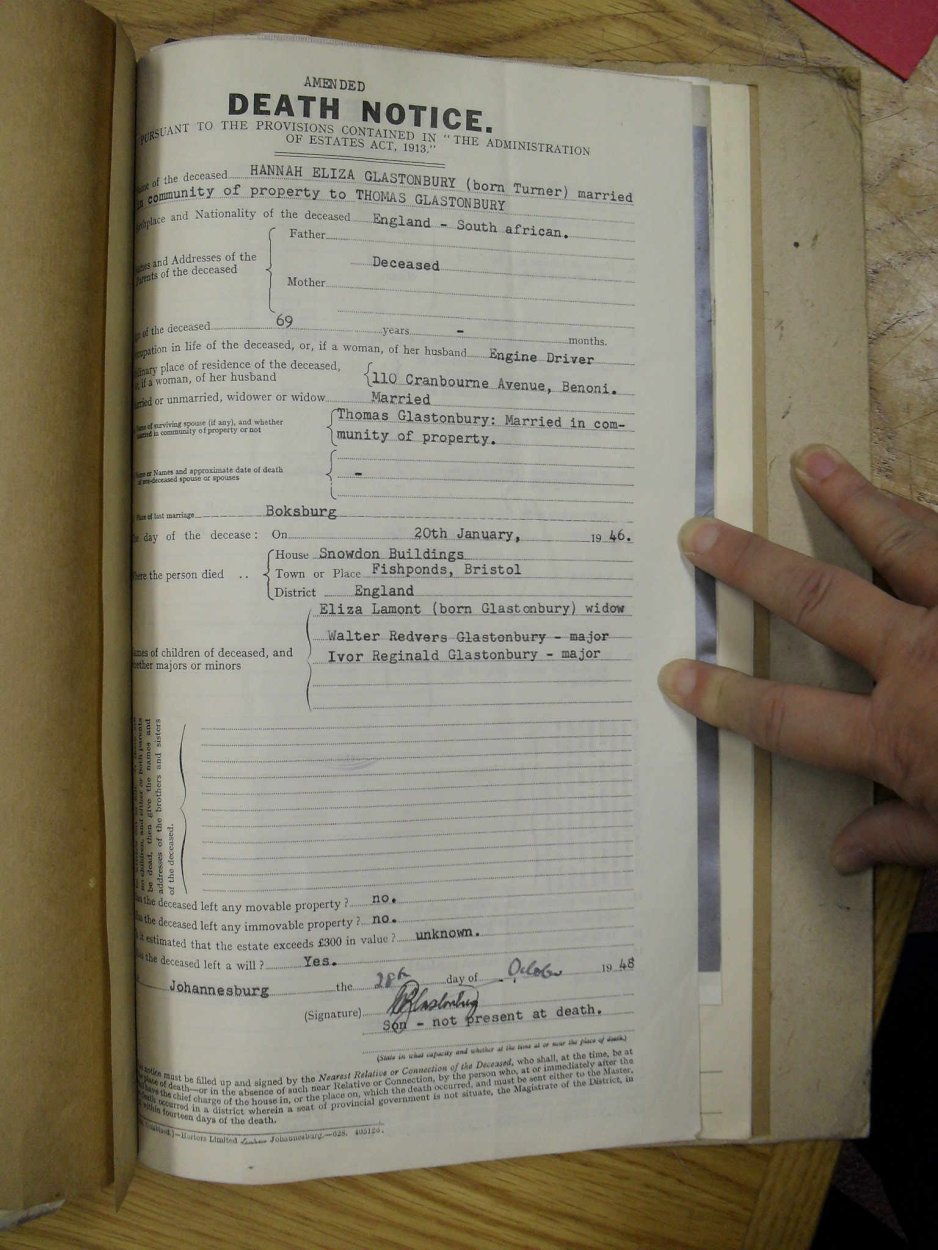 AMENDED
DEATH NOTICE.
PURSUANT TO THE PROVISIONS CONTAINED IN "THE ADMINISTRATION
OF ESTATES ACT, 1913."
of the deceased HANNAH ELIZA GLASTONBURY (born Turner) married
community of property to THOMAS GLASTONBURY
and Nationality of the deceased England - South african.
Father
Names and Addresses of the Parents of the deceased Deceased
Mother
of the deceased 69 years - months.
in life of the deceased, or, if a woman, of her husband Engine Driver
place of residence of the deceased,
if a woman, of her husband 110 Cranbourne Avenue, Benoni.
or unmarried, widower or widow Married
Name of surviving spouse (if any), and whether Thomas Glastonbury: Married in com-
married in community of property or not munity of property.
Name or Names and approximate date of death
of pre-deceased spouse or spouses -
Place of last marriage Boksburg
day of the decease: On 20th January, 19 46.
House Snowdon Buildings
where the person died .. Town or Place Fishponds, Bristol
District England
Eliza Lamont (born Glastonbury) widow
Walter Redvers Glastonbury - major
names of children of deceased, and Ivor Reginald Glastonbury - major
whether majors or minors
no children, and either or both parents
be dead, then give the names and
addresses of the brothers and sisters
of the deceased.
the deceased left any movable property? no.
the deceased left any immovable property? no.
it estimated that the estate exceeds £300 in value? unknown.
the deceased left a will? Yes.
Johannesburg the 28th day of October 19 48
(Signature) Glastonbury
Son - not present at death.
(State in what capacity and whether at the time at or near the place of death.)
notice must be filled up and signed by the Nearest Relative or Connection of the Deceased, who shall, at the time, be at
place of death—or in the absence of such near Relative or Connection, by the person who, at or immediately after the
have the chief charge of the house in, or the place on, which the death occurred, and must be sent either to the Master,
death occurred in a district wherein a seat of provincial government is not situate, the Magistrate of the District, in
within fourteen days of the death.
Hortors Limited Johannesburg.—028.